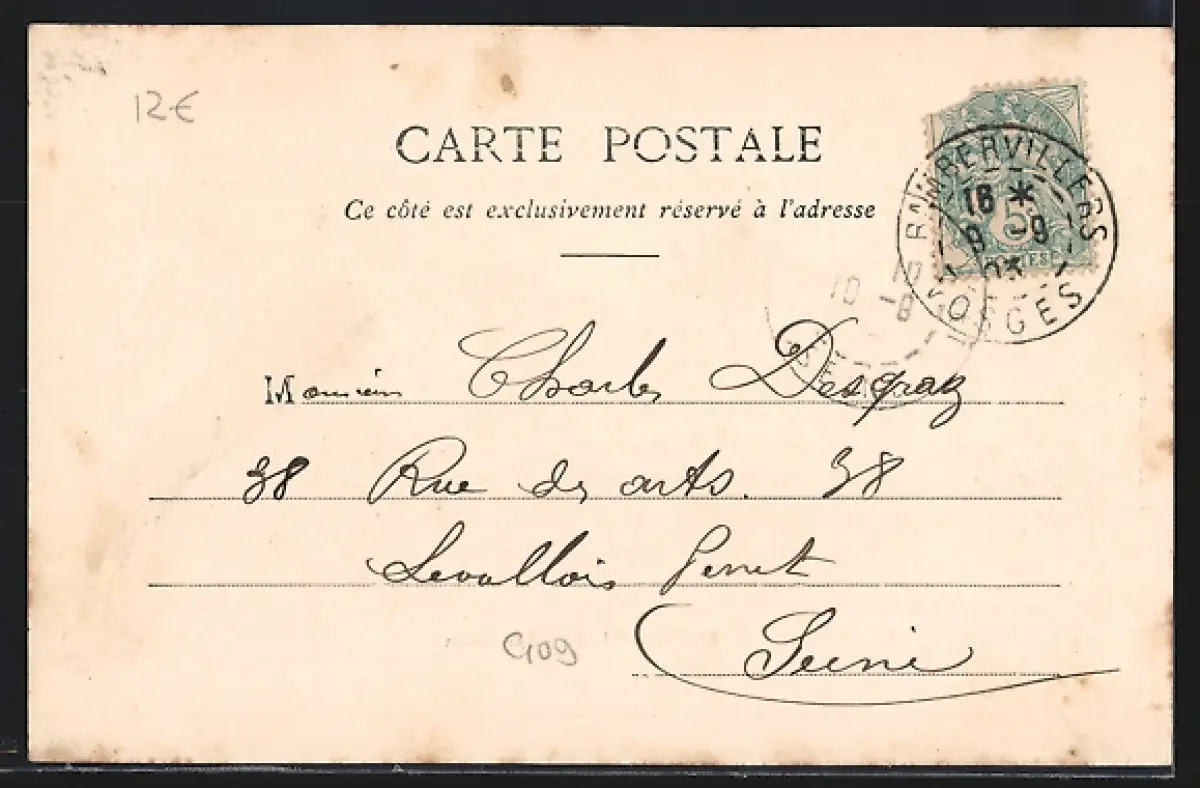 12€
CARTE POSTALE
Ce côté est exclusivement réservé à l'adresse
RAMBERVILLERS
16 *
9 -9
03
VOSGES
5
POSTES
10
10 -9
Monsieur Charles Desgraz
38 Rue des arts. 38
Levallois Perret
Seine